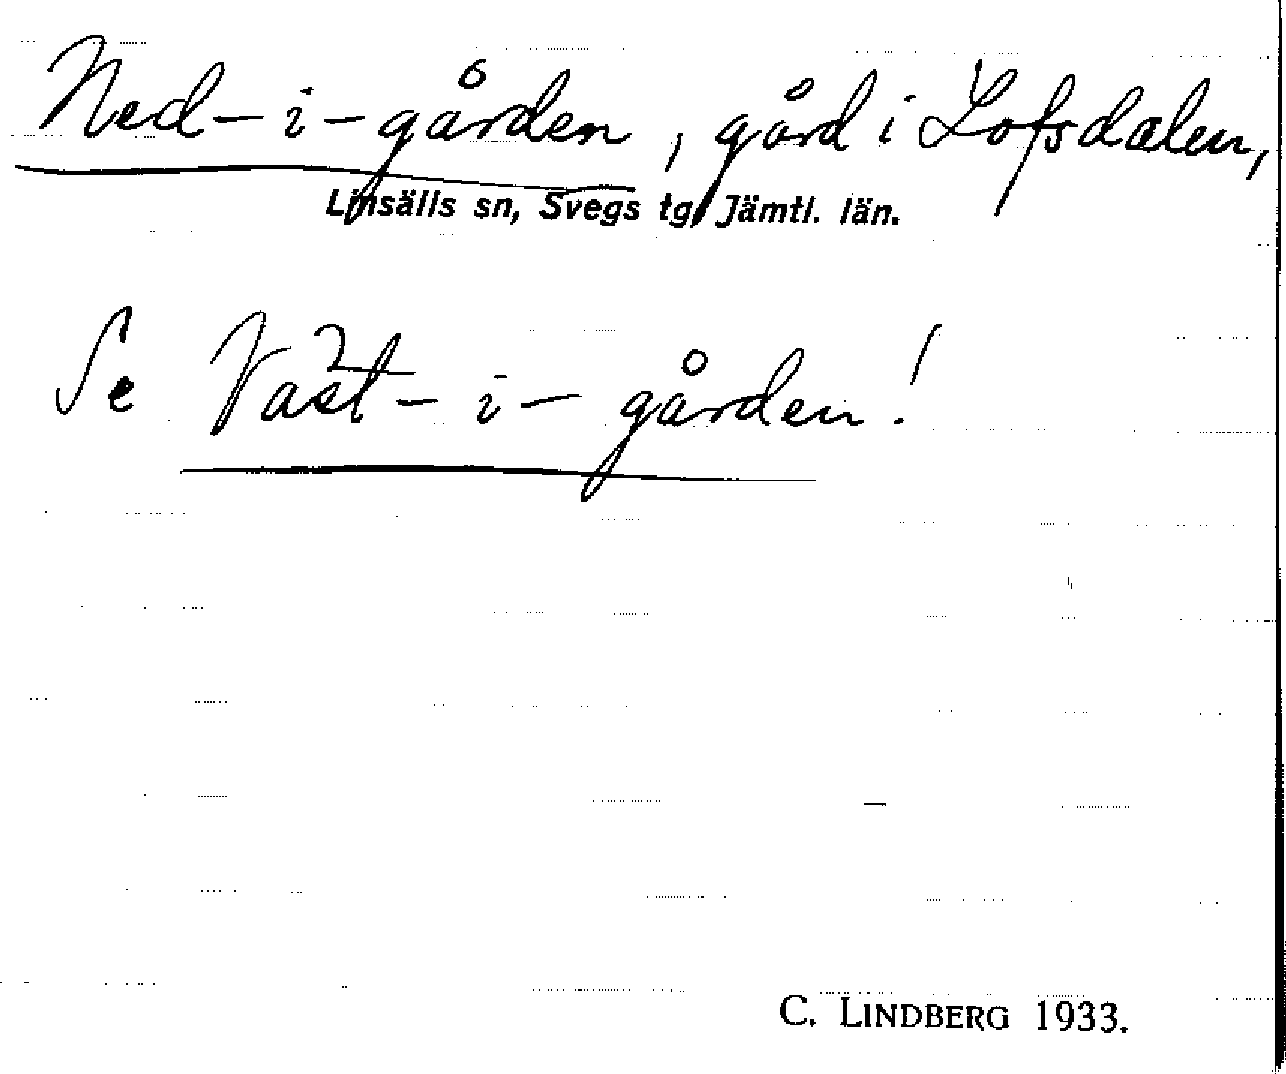 Ned-i-gården, gård i Lofsdalen,
Linsälls sn, Svegs tg, Jämtl. län.
Se Väst-i-gården!
C. LINDBERG 1933.